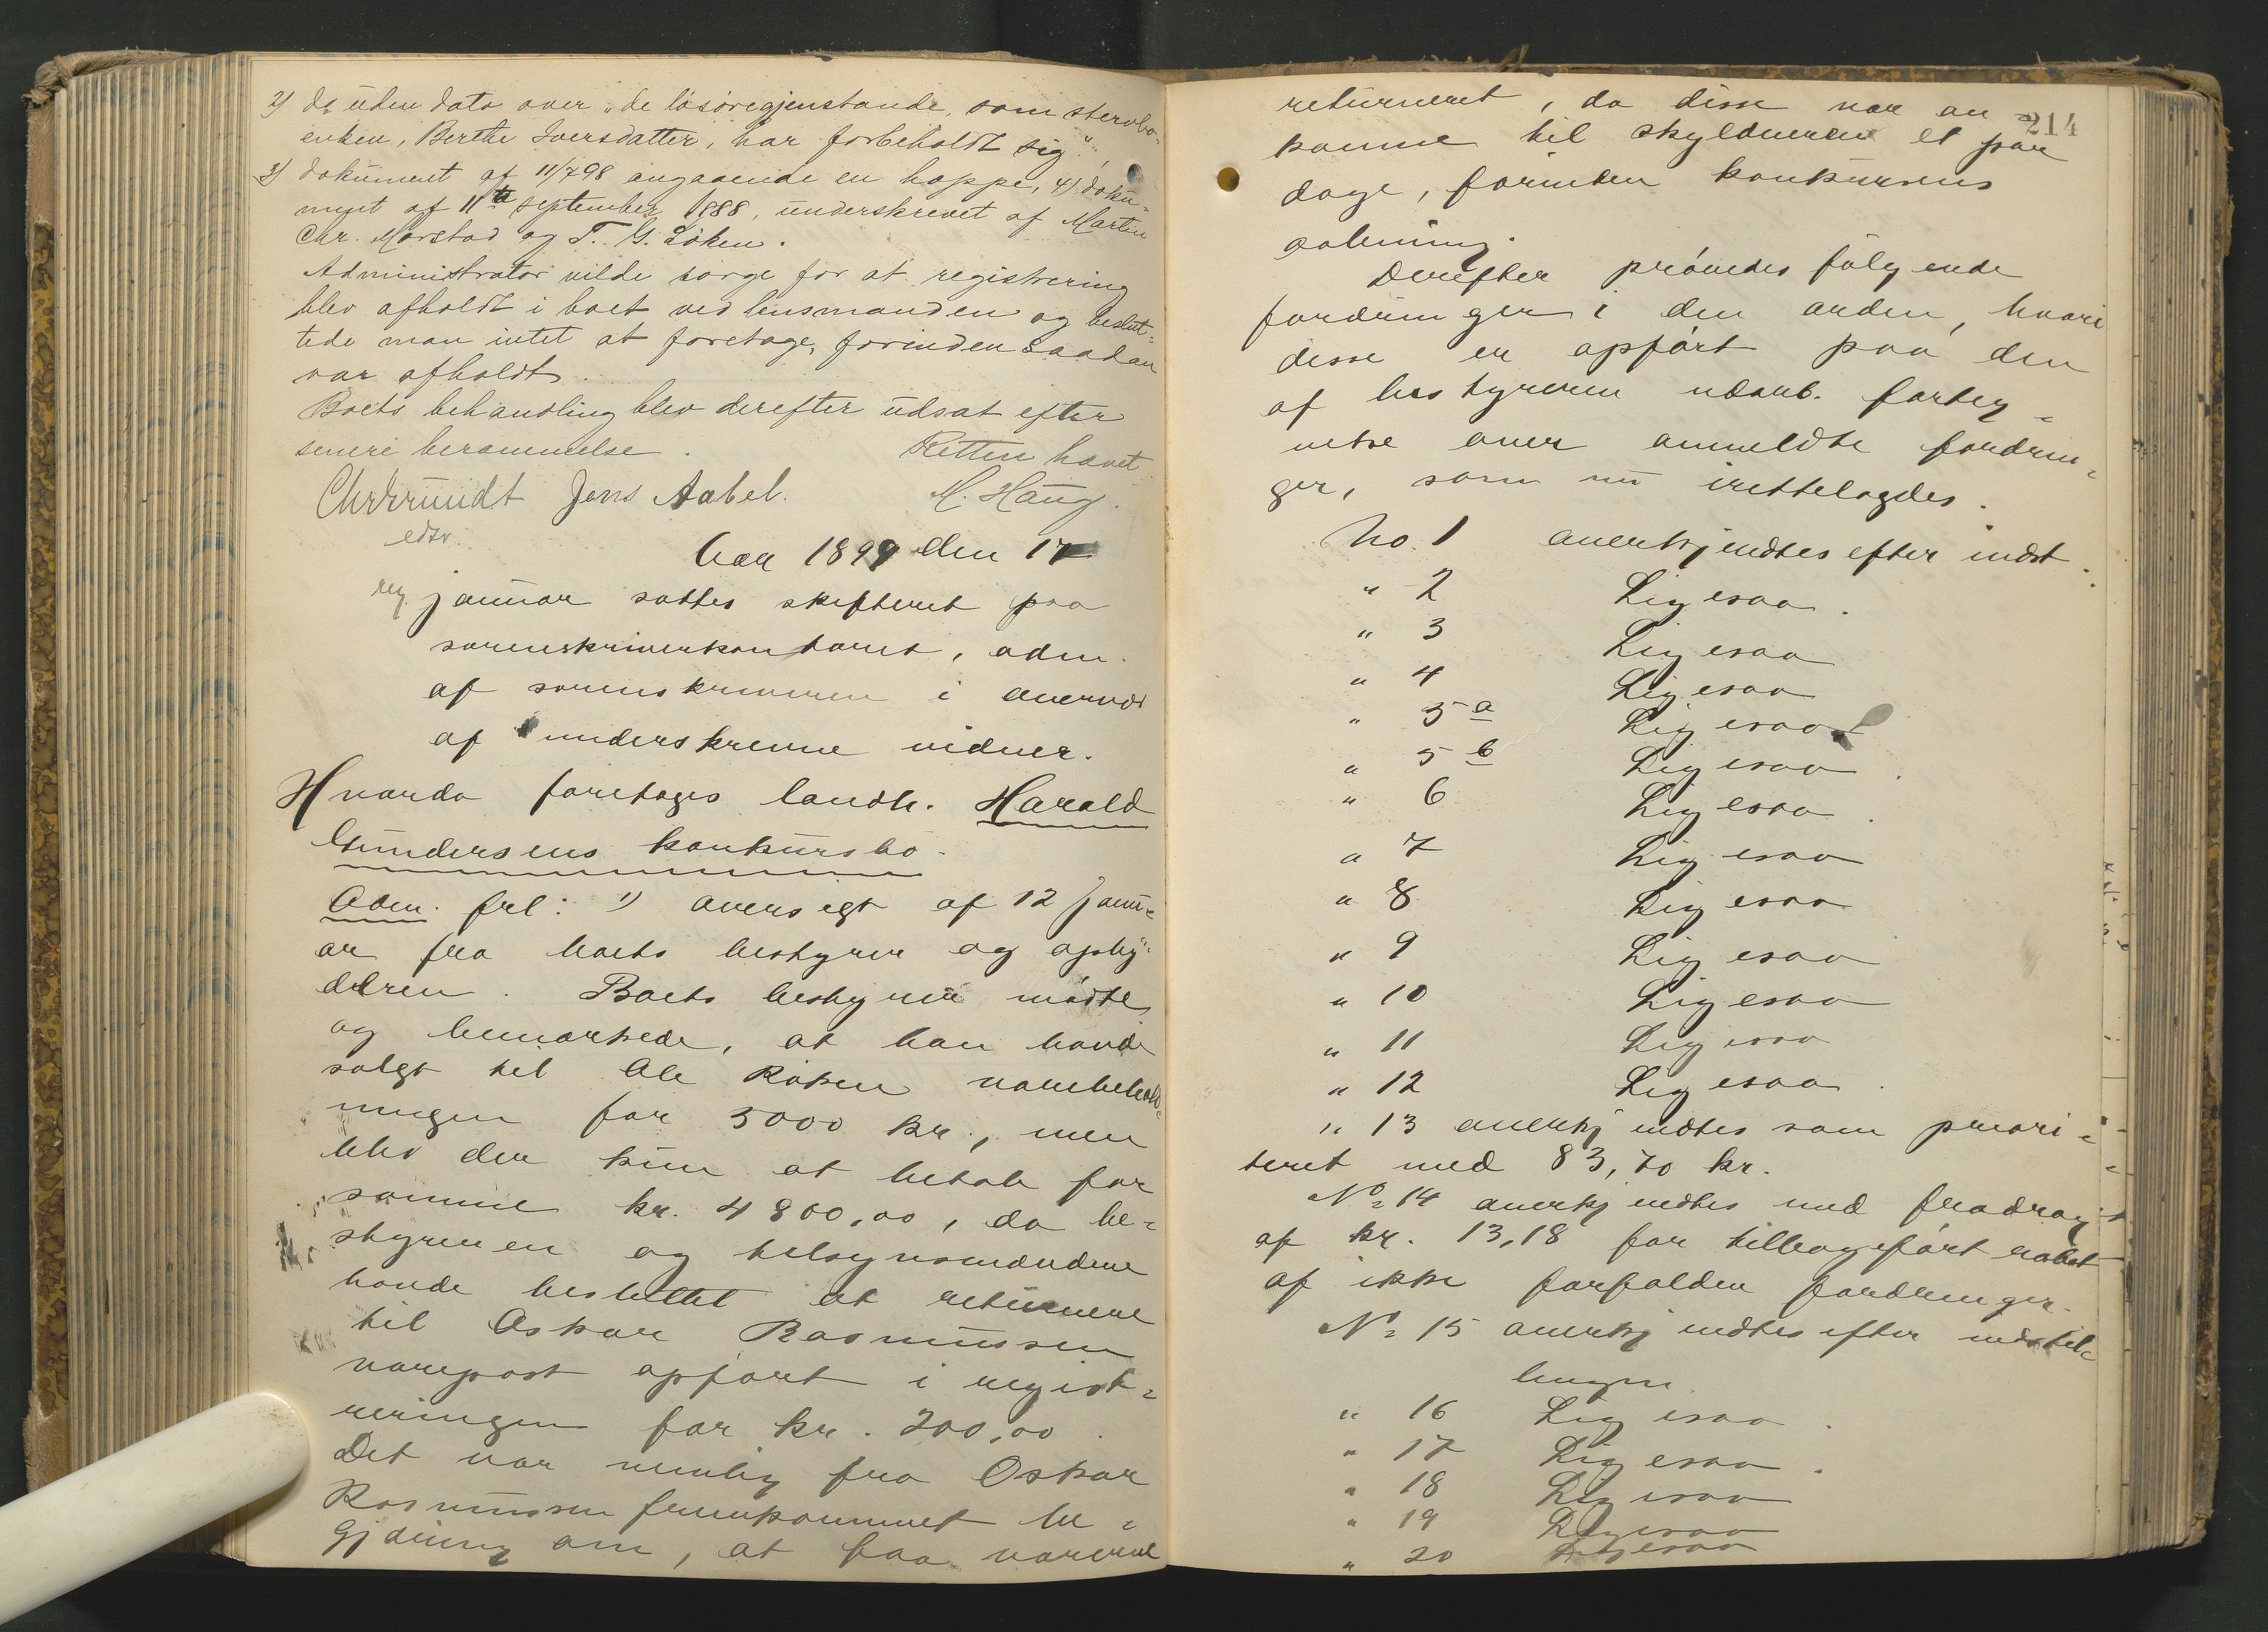 2) do uden dato over „de lösöregjenstande, som stervbo-
enken, Berthe Iversdatter, har forbeholdt sig",
3) dokument af 11/7 98 angaaende en hoppe, 4) doku-
ment af 11te september 1888, underskrevet af Martin
Chr. Morstad og T. G. Löken.
Administrator vilde sørge for at registrering
blev afholdt i boet ved lensmanden og beslut-
tede man intet at foretage, forinden saadan
var afholdt.
Boets behandling blev derefter udsat efter
senere berammelse.
Retten hævet
M. Haug.
Jens Aabel.
edsv.
Aar 1899 den 17
reg. januar sattes skifteret paa
sorenskriverkontoret, adm.
af sorenskriveren i overvær
af underskrevne vidner.
Hvorda foretages landh. Harald
Gundersens konkursbo.
Adm. frl: 1) oversigt af 12 janu-
ar fra boets bestyrer og opby-
deren. Boets bestyrer mödte
og bemærkede, at han havde
solgt til Ole Röken varebehold-
ningen for 5000 kr., men
blev der kun at betale for
samme kr. 4800,00, da be-
styreren og tilsynsmændene
havde besluttet at returnere
til Oskar Rasmussen
varepost opført i regist-
reringen for kr. 200,00.
Det var nemlig fra Oskar
Rasmussen fremkommet be-
gjæring om, at faa varerne
214
returneret, da disse var an-
komne til skyldneren et par
dage, forinden konkursens
aabning.
Derefter prövedes fölgende
fordringer i den orden, hvori
disse er opfört paa den
af bestyreren udarb. forteg-
nelse over anmeldte fordrin-
ger, som nu irettelagdes.
No. 1 anerkjendtes efter indst.
" 2 Ligesaa.
" 3 Ligesaa
" 4 Ligesaa
" 5 a Ligesaa
" 5 b Ligesaa.
" 6 Ligesaa.
" 7 Ligesaa
" 8 Ligesaa
" 9 Ligesaa
" 10 Ligesaa
" 11 Ligesaa
" 12 Ligesaa.
" 13 anerkjendtes som priori-
teret med 83,70 kr.
No 14 anerkjendtes med fradrag
af kr. 13,18 for tilbageført rabat
af ikke forfalden fordringer.
No 15 anerkjendtes efter indstil-
lingen
" 16 Ligesaa.
" 17 Ligesaa.
" 18 Ligesaa
" 19 Ligesaa
" 20 Ligesaa